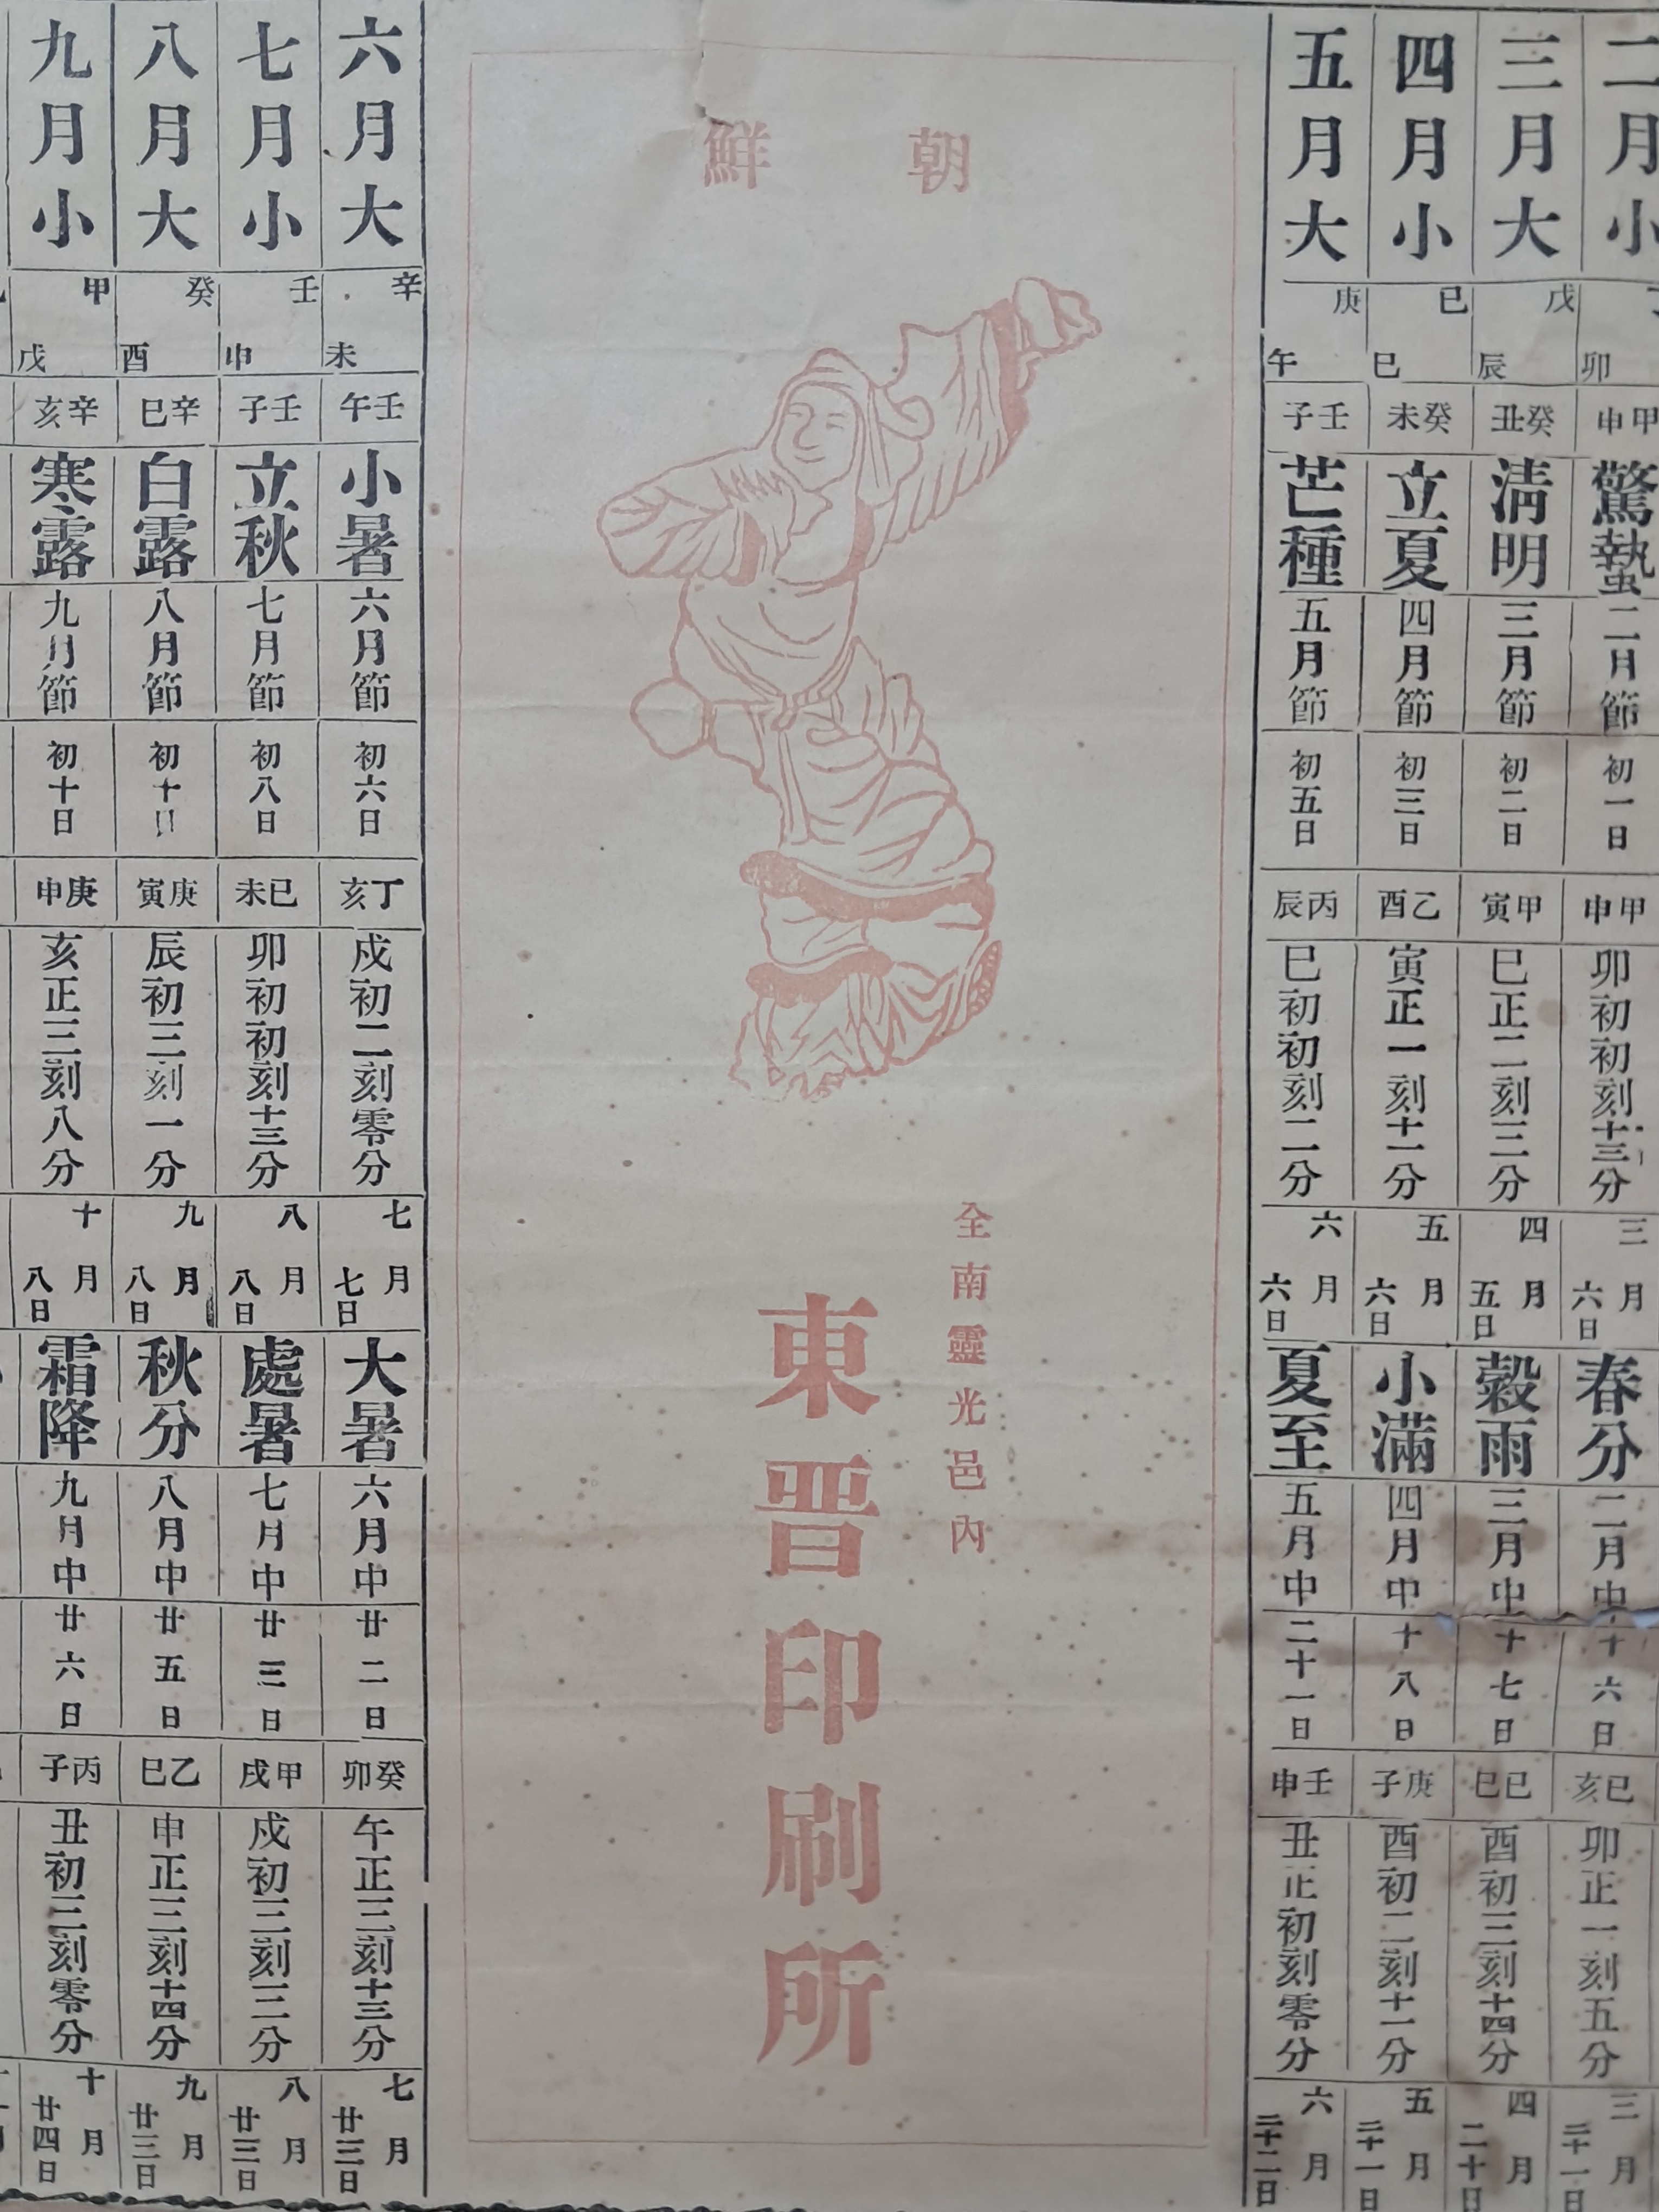 二月小 卯 甲申 驚蟄 二月節 初一日 甲申 卯初初刻十三分 三月六日 春分 二月中 十六日 己亥 卯正一刻五分 三月二十一日
三月大 戊辰 癸丑 淸明 三月節 初二日 甲寅 巳正二刻三分 四月五日 穀雨 三月中 十七日 己巳 酉初三刻十四分 四月二十日
四月小 己巳 癸未 立夏 四月節 初三日 乙酉 寅正一刻十一分 五月六日 小滿 四月中 十八日 庚子 酉初二刻十一分 五月二十一日
五月大 庚午 壬子 芒種 五月節 初五日 丙辰 巳初初刻二分 六月六日 夏至 五月中 二十一日 壬申 丑正初刻零分 六月二十二日
朝鮮
全南靈光邑內
東晋印刷所
六月大 辛未 壬午 小暑 六月節 初六日 丁亥 戌初二刻零分 七月七日 大暑 六月中 廿二日 癸卯 午正三刻十三分 七月廿三日
七月小 壬申 壬子 立秋 七月節 初八日 己未 卯初初刻十三分 八月八日 處暑 七月中 廿三日 甲戌 戌初三刻三分 八月廿三日
八月大 癸酉 辛巳 白露 八月節 初十日 庚寅 辰初三刻一分 九月八日 秋分 八月中 廿五日 乙巳 申正三刻十四分 九月廿三日
九月小 甲戌 辛亥 寒露 九月節 初十日 庚申 亥正三刻八分 十月八日 霜降 九月中 廿六日 丙子 丑初三刻零分 十月廿四日